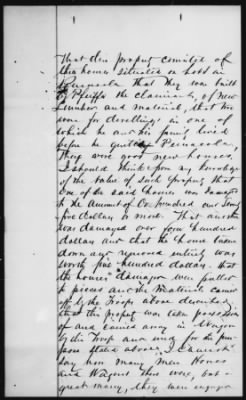 That this property consisted of
three houses situated on lots in
Pensacola That they was built
by Pfeiffer the claimant, of new
Lumber and material, that two
were for dwellings in one of
which he and his family lived
before he quit Pensacola,
They were good new houses.
I should think from my knowledge
of the value of such property that
one of the said houses was damaged
to the amount of One hundred and Seventy
five dollars or more. That another
was damaged over four hundred
dollars and that the house taken
down and removed entirely was
worth five hundred dollars. that
the houses damaged were pulled
to pieces and the Material carried
off by the Troops above described,
that the property was taken possession
of and carried away in Wagons
by the Troops and used for the purpose
stated above, I cannot
say how many Men Horses
and Wagons there were, but a
great many, they were engaged